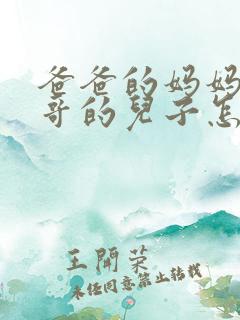 爸爸的妈妈
哥的兒子怎
王開榮
未经同意禁止转载